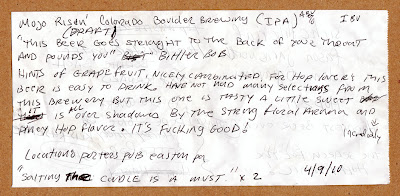 Mojo Risin' Colorado Boulder Brewing (IPA) ABV % IBU
(DRAFT)
"This Beer Goes Straight to the Back of your Throat
And pounds you" Bitter Bob
Hints of GRAPEFRUIT, Nicely CARBONATED, For Hop lovers this
Beer is easy to drink. Have not had many selections from
this Brewery But this one is tasty A little sweet
"it is over shadowed By the Strong Floral Aroma and
Piney Hop Flavor. It's Fucking Good!
Incredibly
Location: porters pub easton pa
Salting the candle is a must." x 2
4/9/10